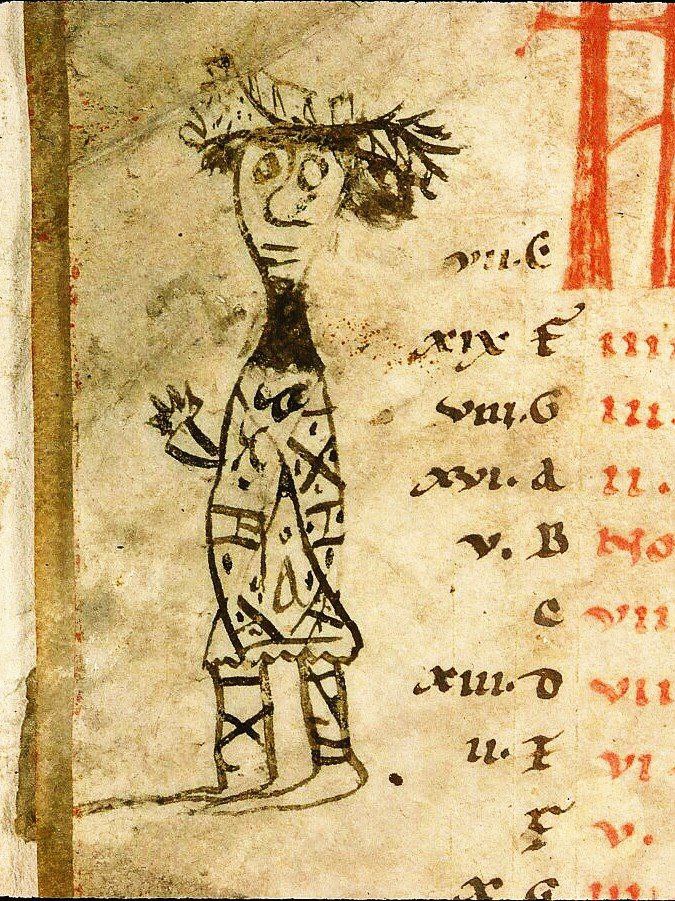 vii. E
xix F iii
viii. G iii.
xvi. A ii.
v. B No
c vii
xiii. D vii
ii. E vi
F v.
x G iii